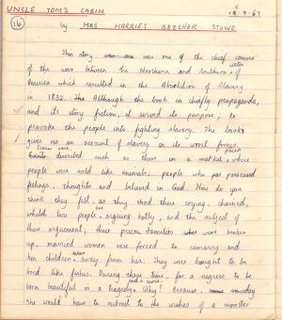 UNCLE TOM'S CABIN
16
by MRS HARRIET BEECHER STOWE
This story was one of the chief causes
of the war between the Northern and Southern
America which resulted in the Abolition of Slavery
in 1832. Although the book is chiefly propaganda,
and its story fiction, it served its purpose, to
provoke the people into fighting slavery. The book
gives us an account of slavery in its worst forms.
described such is those in a market, where
people were sold like animals: people who possessed
feelings, thoughts and believed in God. How do you
think they felt as they stood there crying, chained,
whilst two people arguing hotly, and the subject of
their argument, their families were broken
up, married women were forced to remarry and
her children away from her. They were bought to be
During these time, for a negress to be
born beautiful is a tragedy. Why? Because
she would have to submit to the wishes of a monster